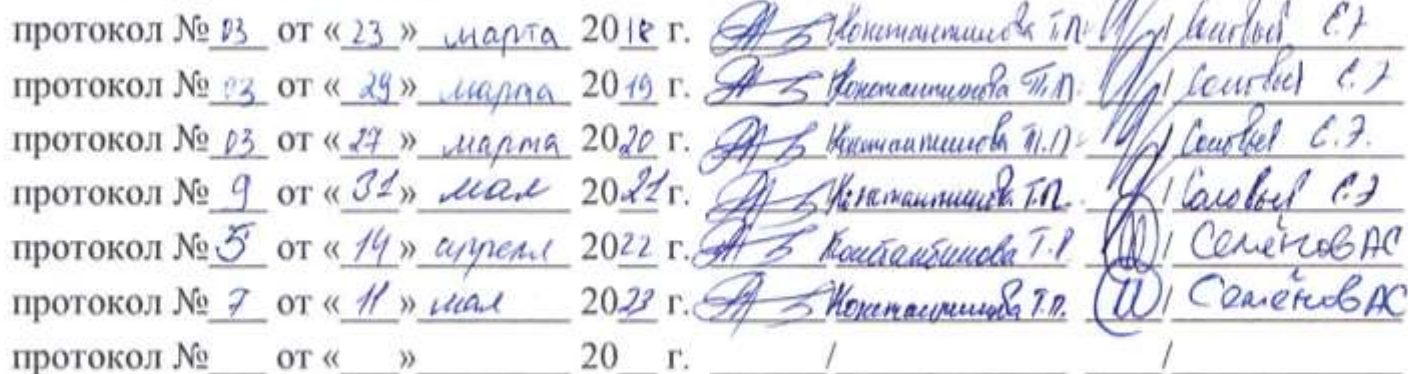 протокол № 03 от « 23 » марта 2018 г. / Константинова Т.П. / Соловьев С.Э
протокол № 03 от « 29 » марта 2019 г. / Константинова Т.П. / Соловьев С.Э
протокол № 03 от « 27 » марта 2020 г. / Константинова Т.П. / Соловьев С.Э.
протокол № 9 от « 31 » мая 2021 г. / Константинова Т.П. / Соловьев С.Э
протокол № 5 от « 14 » апреля 2022 г. / Константинова Т.П / Семёнов АС
протокол № 7 от « 11 » мая 2023 г. / Константинова Т.П. / Семёнов АС
протокол №___ от «___»________ 20___ г. ________/________ ________/________